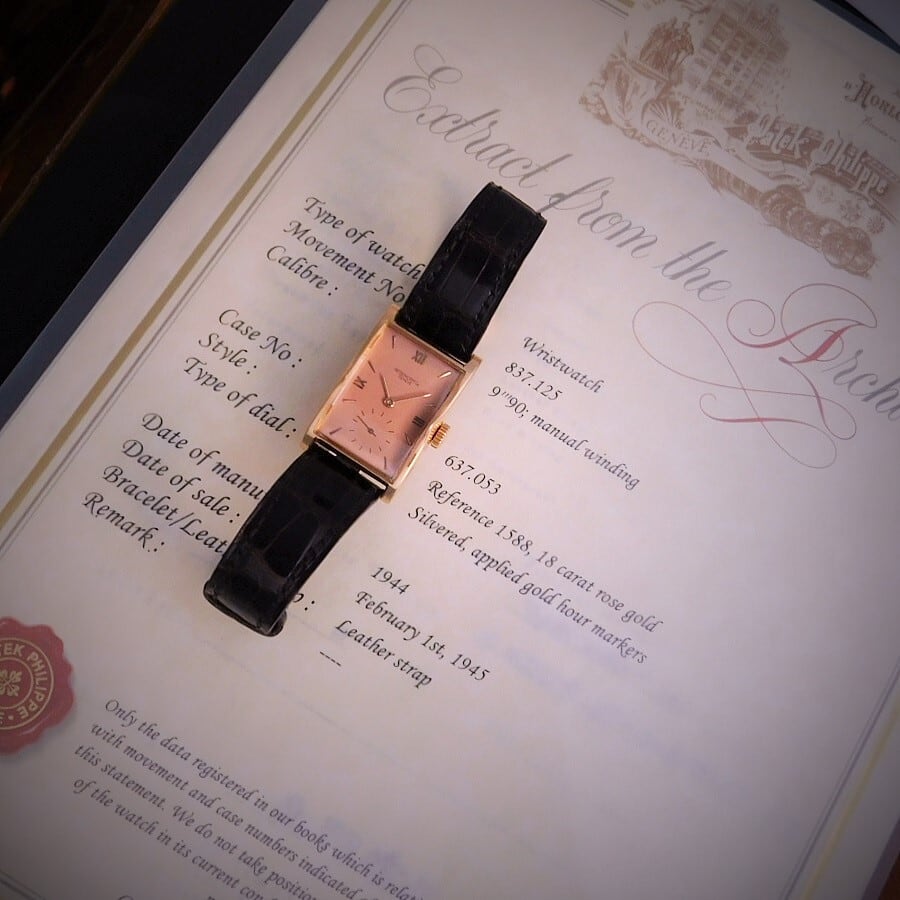 D'HORL
GENÈVE
Patek Philippe
Extract from the Archi
Type of watch Wristwatch
Movement No 837.125
Calibre : 9'''90; manual winding
Case No : 637.053
Style : Reference 1588, 18 carat rose gold
Type of dial : Silvered, applied gold hour markers
Date of manu 1944
Date of sale : February 1st, 1945
Bracelet/Leat : Leather strap
Remark : ---
XII
IX
III
TEK PHILIPPE
Only the data registered in our books which is relat
with movement and case numbers indicated
this statement. We do not take position
of the watch in its current con